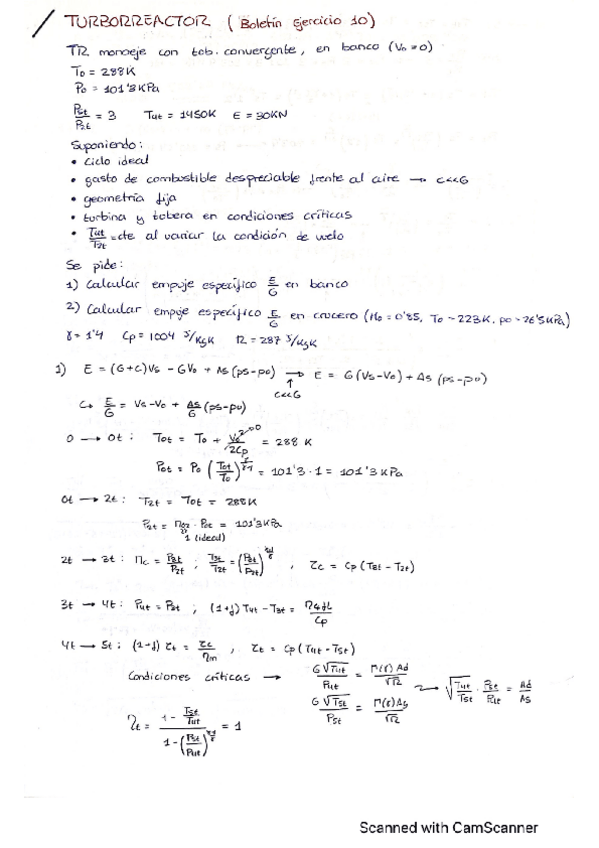 TURBORREACTOR (Boletín Ejercicio 10)
TR monoeje con tob. convergente, en banco (V₀=0)
T₀ = 288K
P₀ = 101'3 KPa
P₅t/P₂t = 3 T₄t = 1450K E = 30KN
Suponiendo:
• ciclo ideal
• gasto de combustible despreciable frente al aire → c<<G
• geometría fija
• turbina y tobera en condiciones críticas
• T₄t/T₂t = cte al variar la condición de vuelo
Se pide:
1) Calcular empuje específico E/G en banco
2) Calcular empuje específico E/G en crucero (M₀ = 0'85, T₀ = 223K, p₀ = 26'5KPa)
γ = 1'4 Cp = 1004 J/KgK R = 287 J/KgK
1) E = (G+c)Vs - GV₀ + As(ps-p₀) → E = G(Vs-V₀) + As(ps-p₀)
c<<G
↳ E/G = Vs-V₀ + As/G (ps-p₀)
0 → 0t : T₀t = T₀ + V₀²/2Cp = 288 K
P₀t = P₀ (T₀t/T₀)^(γ/(γ-1)) = 101'3 · 1 = 101'3 KPa
0t → 2t : T₂t = T₀t = 288K
P₂t = π₀₂ · P₀t = 101'3KPa
1 (ideal)
2t → 3t : πc = P₃t/P₂t ; T₃t/T₂t = (P₃t/P₂t)^((γ-1)/γ) , τc = Cp(T₃t - T₂t)
3t → 4t : P₄t = P₃t ; (1+f) T₄t - T₃t = η₄fL/Cp
4t → 5t : (1+f) τt = τc/ηm , τt = Cp(T₄t - T₅t)
Condiciones críticas → G√T₄t/P₄t = Γ(γ)Ad/√R → √(T₄t/T₅t) · P₅t/P₄t = Ad/As
G√T₅t/P₅t = Γ(γ)As/√R
ηt = (1 - T₅t/T₄t)/(1-(P₅t/P₄t)^((γ-1)/γ)) = 1
Scanned with CamScanner